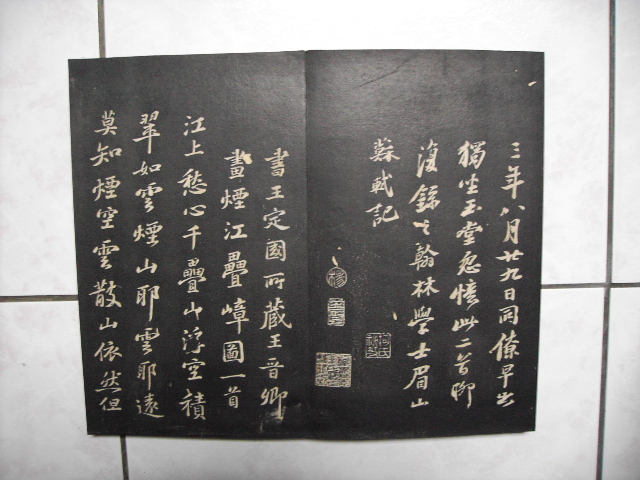 三年八月廿九日同僚早出
獨坐玉堂忽憶此二首聊
復錄之翰林學士眉山
蘇軾記
書王定國所藏王晉卿
畫煙江疊嶂圖一首
江上愁心千疊山浮空積
翠如雲煙山耶雲耶遠
莫知煙空雲散山依然但